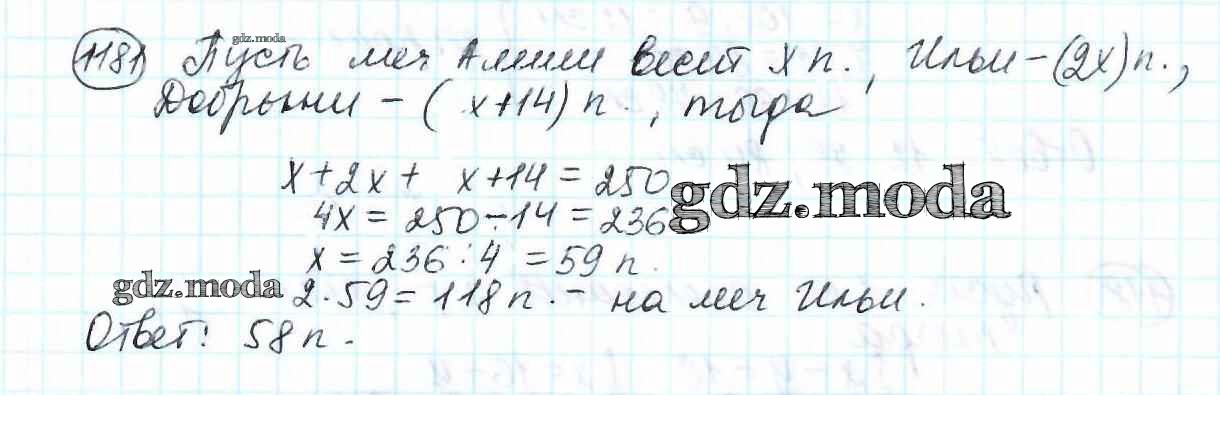 gdz.moda
1181 Пусть меч Алеши весит x п., Ильи - (2x) п.,
Добрыни - ( x+14) п., тогда
x + 2x + x+14 = 250
gdz.moda
4x = 250 - 14 = 236
x = 236 : 4 = 59 п.
gdz.moda
2 · 59 = 118 п. - на меч Ильи.
Ответ: 58 п.